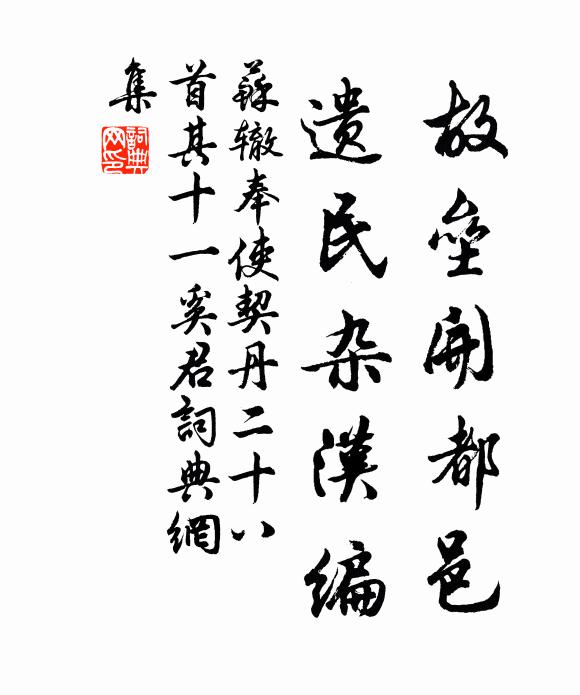 故垒開都邑
遗民杂漢编
蘇辙奉使契丹二十八
首其十一奚君詞典網
集
詞典
网印